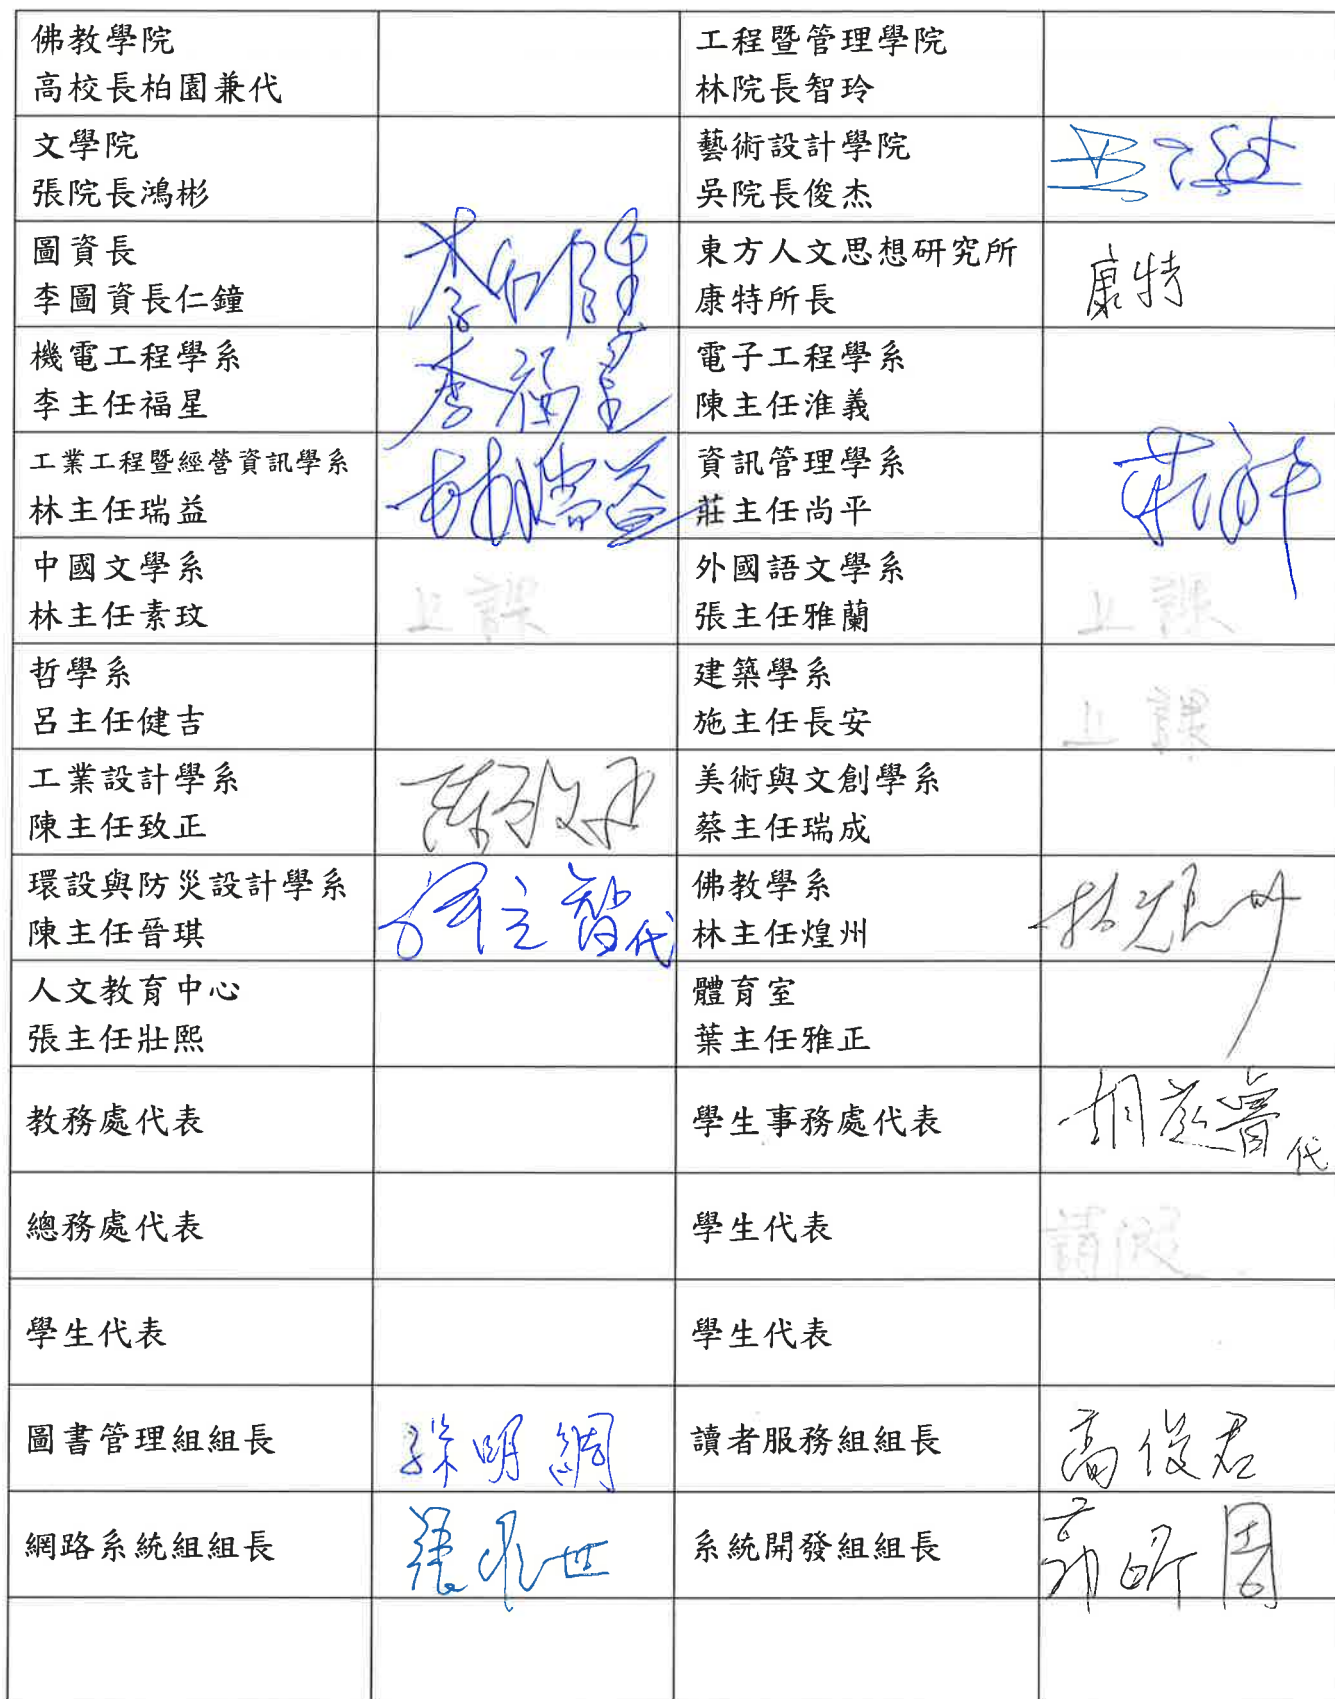 佛教學院
高校長柏園兼代
工程暨管理學院
林院長智玲
文學院
張院長鴻彬
藝術設計學院
吳院長俊杰
圖資長
李圖資長仁鐘
李仁鐘
東方人文思想研究所
康特所長
康特
機電工程學系
李主任福星
李福星
電子工程學系
陳主任淮義
工業工程暨經營資訊學系
林主任瑞益
林瑞益
資訊管理學系
莊主任尚平
中國文學系
林主任素玟
上課
外國語文學系
張主任雅蘭
上課
哲學系
呂主任健吉
建築學系
施主任長安
上課
工業設計學系
陳主任致正
陳致正
美術與文創學系
蔡主任瑞成
環設與防災設計學系
陳主任晉琪
立智代
佛教學系
林主任煌州
林煌州
人文教育中心
張主任壯熙
體育室
葉主任雅正
教務處代表
學生事務處代表
代
總務處代表
學生代表
請假
學生代表
學生代表
圖書管理組組長
明
讀者服務組組長
高俊君
網路系統組組長
張 世
系統開發組組長